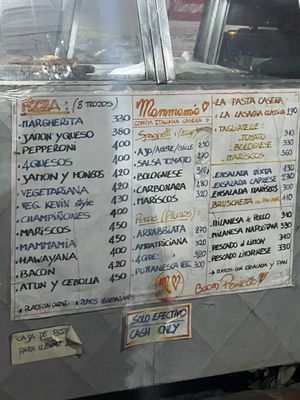 PIZZA: (8 TROZOS)
MARGHERITA 330
JAMON Y QUESO 380
PEPPERONI 400
4 QUESOS 400
JAMON Y HONGOS 420
VEGETARIANA 420
VEG. KEVIN STYLE 430
CHAMPIÑONES 400
MARISCOS 450
MAMMAMIA 450
HAWAYANA 420
BACON 420
ATUN Y CEBOLLA 450
Mammamia
COMIDA ITALIANA CASERA
Spaghetti
AJO/ACEITE/CHILE
SALSA TOMATO
BOLOGNESE
CARBONARA
MARISCOS
Penne (Plumas)
ARRABBIATA 270
AMATRICIANA
4 QUESOS
PUTTANESCA VEG. 300
LA PASTA CASERA
LA LASAGNA CASERA 290
TAGLIATELLE:
TOMATO
BOLOGNESE
MARISCOS 360
ENSALADA MIXTA
ENSALADA CAPRESE
ENSALADA MARISCOS 300
BRUSCHETTA
MILANESA DE POLLO 340
MILANESA NAPOLITANA
PESCADO J. LIMON 340
PESCADO LIVORNESE
PLATOS CON ENSALADA Y PAN
SOLO EFECTIVO
CASH ONLY
CAJA DE PIZZA
PARA LLEVAR